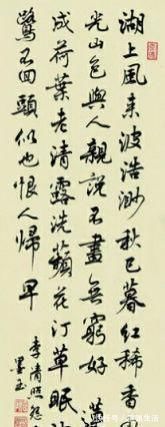 湖上風来波浩渺秋已暮紅稀香
光山色與人親說不盡無窮好
成荷葉老清露洗蘋花汀草眠
鷺不回頭似也恨人歸早
李清照怨
墨玉